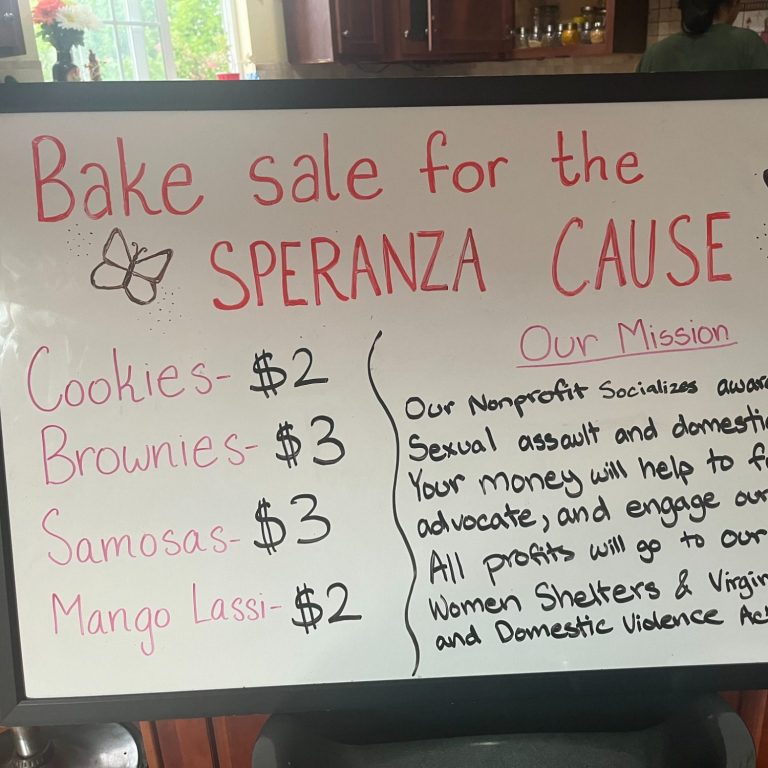 Bake sale for the
SPERANZA CAUSE
Cookies- $2
Brownies- $3
Samosas- $3
Mango Lassi- $2
Our Mission
Our Nonprofit Socializes
Sexual assault and
Your money will help to
advocate, and engage our
All profits will go to our
Women Shelters &
and Domestic Violence